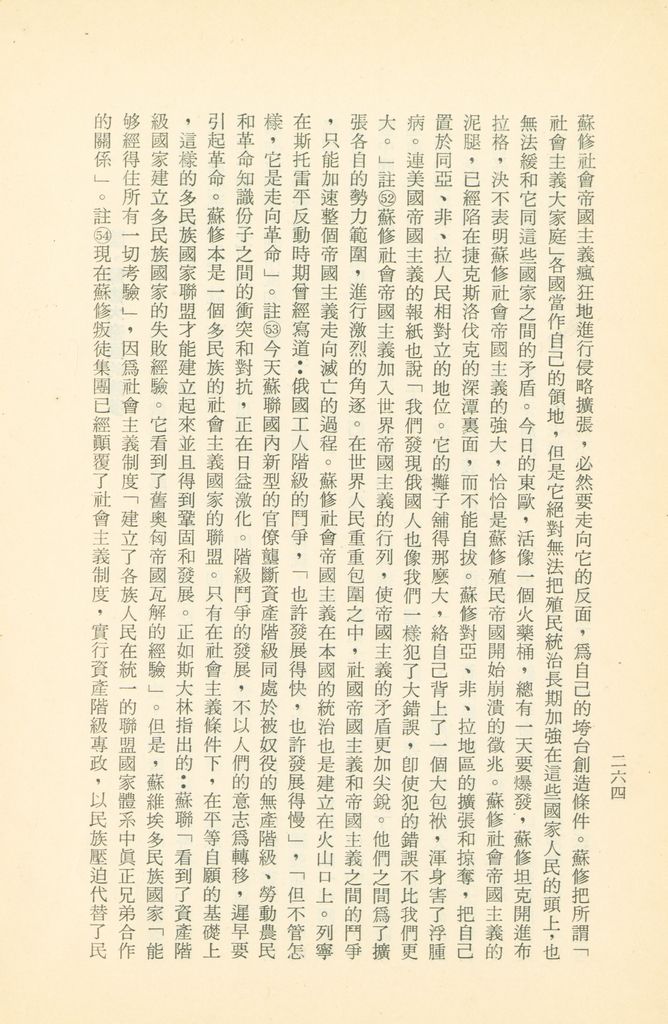 蘇修社會帝國主義瘋狂地進行侵略擴張，必然要走向它的反面，爲自己的垮台創造條件。蘇修把所謂「
社會主義大家庭」各國當作自己的領地，但是它絕對無法把殖民統治長期加強在這些國家人民的頭上，也
無法緩和它同這些國家之間的矛盾。今日的東歐，活像一個火藥桶，總有一天要爆發，蘇修坦克開進布
拉格，決不表明蘇修社會帝國主義的強大，恰恰是蘇修殖民帝國開始崩潰的徵兆。蘇修社會帝國主義的
泥腿，已經陷在捷克斯洛伐克的深潭裏面，而不能自拔。蘇修對亞、非、拉地區的擴張和掠奪，把自己
置於同亞、非、拉人民相對立的地位。它的攤子舖得那麼大，給自己背上了一個大包袱，渾身害了浮腫
病。連美國帝國主義的報紙也說「我們發現俄國人也像我們一樣犯了大錯誤，卽使犯的錯誤不比我們更
大。」註㊾蘇修社會帝國主義加入世界帝國主義的行列，使帝國主義的矛盾更加尖銳。他們之間爲了擴
張各自的勢力範圍，進行激烈的角逐。在世界人民重重包圍之中，社國帝國主義和帝國主義之間的鬥爭
，只能加速整個帝國主義走向滅亡的過程。蘇修社會帝國主義在本國的統治也是建立在火山口上。列寧
在斯托雷平反動時期曾經寫道：俄國工人階級的鬥爭，「也許發展得快，也許發展得慢」，「但不管怎
樣，它是走向革命」。註53今天蘇聯國內新型的官僚壟斷資產階級同處於被奴役的無產階級、勞動農民
和革命知識份子之間的衝突和對抗，正在日益激化。階級鬥爭的發展，不以人們的意志爲轉移，遲早要
引起革命。蘇修本是一個多民族的社會主義國家的聯盟。只有在社會主義條件下，在平等自願的基礎上
，這樣的多民族國家聯盟才能建立起來並且得到鞏固和發展。正如斯大林指出的：蘇聯「看到了資產階
級國家建立多民族國家的失敗經驗。它看到了舊奧匈帝國瓦解的經驗」。但是，蘇維埃多民族國家「能
够經得住所有一切考驗」，因爲社會主義制度「建立了各族人民在統一的聯盟國家體系中眞正兄弟合作
的關係」。註54現在蘇修叛徒集團已經顚覆了社會主義制度，實行資產階級專政，以民族壓迫代替了民
二六四